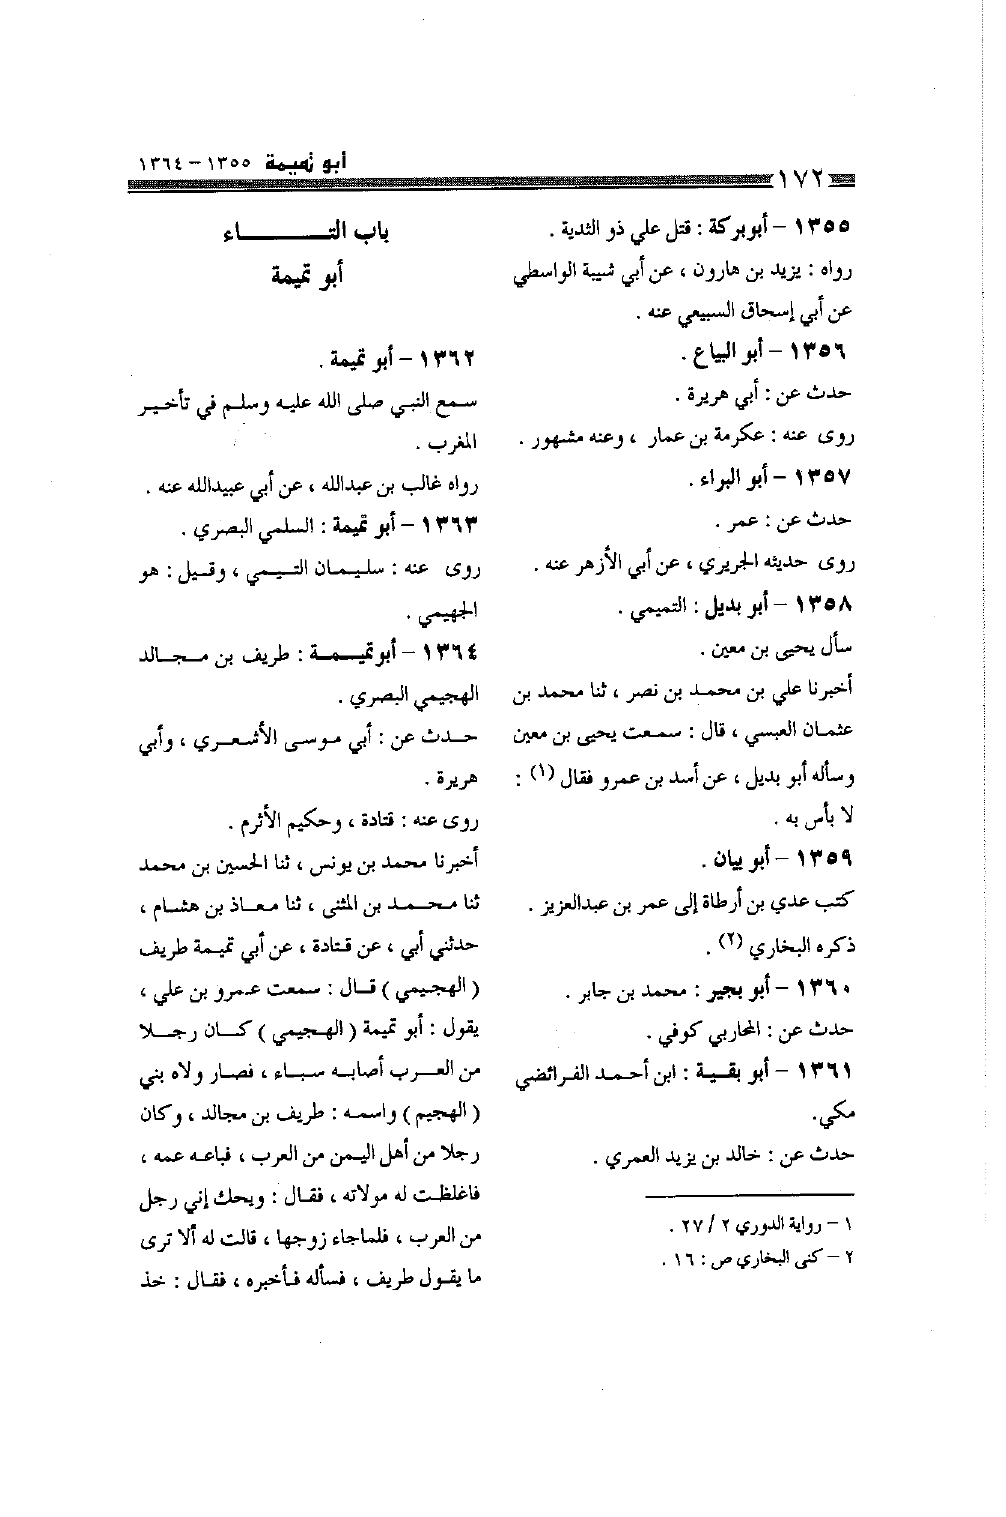 أبو تميمة ١٣٥٥ - ١٣٦٤
١٧٢
١٣٥٥ - أبوبركة : قتل علي ذو الثدية .
رواه : يزيد بن هارون ، عن أبي شيبة الواسطي
عن أبي إسحاق السبيعي عنه .
١٣٥٦ - أبو البياع .
حدث عن : أبي هريرة .
روى عنه : عكرمة بن عمار ، وعنه مشهور .
١٣٥٧ - أبو البراء .
حدث عن : عمر .
روى حديثه الجريري ، عن أبي الأزهر عنه .
١٣٥٨ - أبو بديل : التميمي .
سأل يحيى بن معين .
أخبرنا علي بن محمد بن نصر ، ثنا محمد بن
عثمان العبسي ، قال : سمعت يحيى بن معين
وسأله أبو بديل ، عن أسد بن عمرو فقال (١) :
لا بأس به .
١٣٥٩ - أبو بيان .
كتب عدي بن أرطاة إلى عمر بن عبدالعزيز .
ذكره البخاري (٢) .
١٣٦٠ - أبو بجير : محمد بن جابر .
حدث عن : المحاربي كوفي .
١٣٦١ - أبو بقية : ابن أحمد الفرائضي
مكي.
حدث عن : خالد بن يزيد العمري .
١ - رواية الدوري ٢ / ٢٧ .
٢ - كنى البخاري ص : ١٦ .
باب التاء
أبو تميمة
١٣٦٢ - أبو تميمة .
سمع النبي صلى الله عليه وسلم في تأخير
المغرب .
رواه غالب بن عبدالله ، عن أبي عبيدالله عنه .
١٣٦٣ - أبو تميمة : السلمي البصري .
روى عنه : سليمان التيمي ، وقيل : هو
الجهيمي .
١٣٦٤ - أبوتميمة : طريف بن مجالد
الهجيمي البصري .
حدث عن : أبي موسى الأشعري ، وأبي
هريرة .
روى عنه : قتادة ، وحكيم الأثرم .
أخبرنا محمد بن يونس ، ثنا الحسين بن محمد
ثنا محمد بن المثنى ، ثنا معاذ بن هشام ،
حدثني أبي ، عن قتادة ، عن أبي تميمة طريف
( الهجيمي ) قال : سمعت عمرو بن علي ،
يقول : أبو تميمة ( الهجيمي ) كان رجلا
من العرب أصابه سباء ، فصار ولاه بني
( الهجيم ) واسمه : طريف بن مجالد ، وكان
رجلا من أهل اليمن من العرب ، فباعه عمه ،
فاغلظت له مولاته ، فقال : ويحك إني رجل
من العرب ، فلماجاء زوجها ، قالت له ألا ترى
ما يقول طريف ، فسأله فأخبره ، فقال : خذ